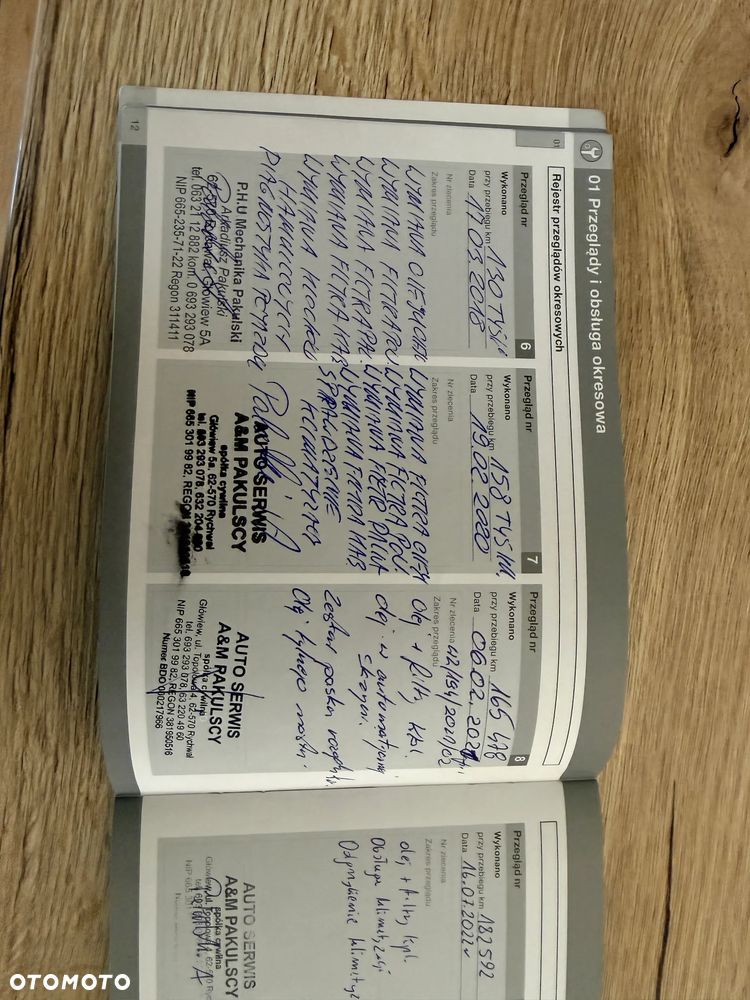 01 Przeglądy i obsługa okresowa
01
Rejestr przeglądów okresowych
Przegląd nr
6
Wykonano
przy przebiegu km 130 TYS
Data 17.03.2018
Nr zlecenia
Zakres przeglądu
WYMIANA
WYMIANA FILTRA
WYMIANA FILTRA
WYMIANA FILTRA
WYMIANA
HAMULCOWYCH
DIAGNOSTYKA
P.H.U Mechanika Pakulski
Arkadiusz Pakulski
62-570 Rychwał, Główiew 5A
tel. 063 21 12 882 kom. 0 693 293 078
NIP 665-235-71-22 Regon 311411
12
Przegląd nr
7
Wykonano
przy przebiegu km 158 TYS KM,
Data 19.02.2020
Nr zlecenia
Zakres przeglądu
WYMIANA FILTRA
WYMIANA FILTRA
WYMIANA
WYMIANA FILTRA KAB
SPRAWDZENIE
KLIMATYZACJI
AUTO SERWIS
A&M PAKULSCY
spółka cywilna
Główiew 5a, 62-570 Rychwał
tel. 693 293 078, 632 204
NIP 665 301 99 82, REGON
Przegląd nr
8
Wykonano
przy przebiegu km 165 478
Data 06.02.2021
Nr zlecenia 42194/2021/02
Zakres przeglądu
Olej + filtry kpl.
olej w automatycznej
skrzyni
zestaw paska rozrządu
Olej tylnego mostu
AUTO SERWIS
A&M PAKULSCY
spółka cywilna
Główiew, ul. Topolowa 4, 62-570 Rychwał
tel. 693 293 078, 63 220 49 60
NIP 665 301 99 82, REGON 381950516
Numer BDO 000217966
Przegląd nr
Wykonano
przy przebiegu km 182 592
Data 16.07.2022r
Nr zlecenia
Zakres przeglądu
olej + filtry kpl.
Obsługa klimatyzacji
Odgrzybienie
AUTO SERWIS
A&M PAKULSCY
spółka cywilna
Główiew, ul. Topolowa 4, 62-570
OTOMOTO